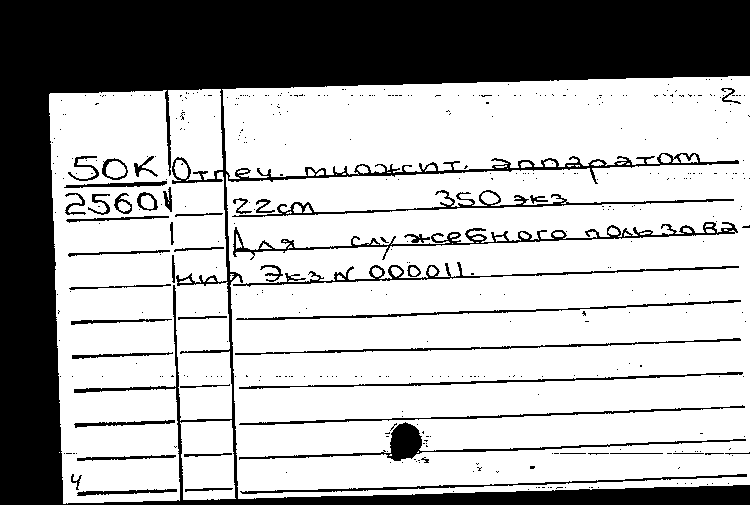 2
50К Отпеч. множит. аппаратом
2560 22cm 350 экз
Для служебного пользова-
ния Экз N 000011.
4